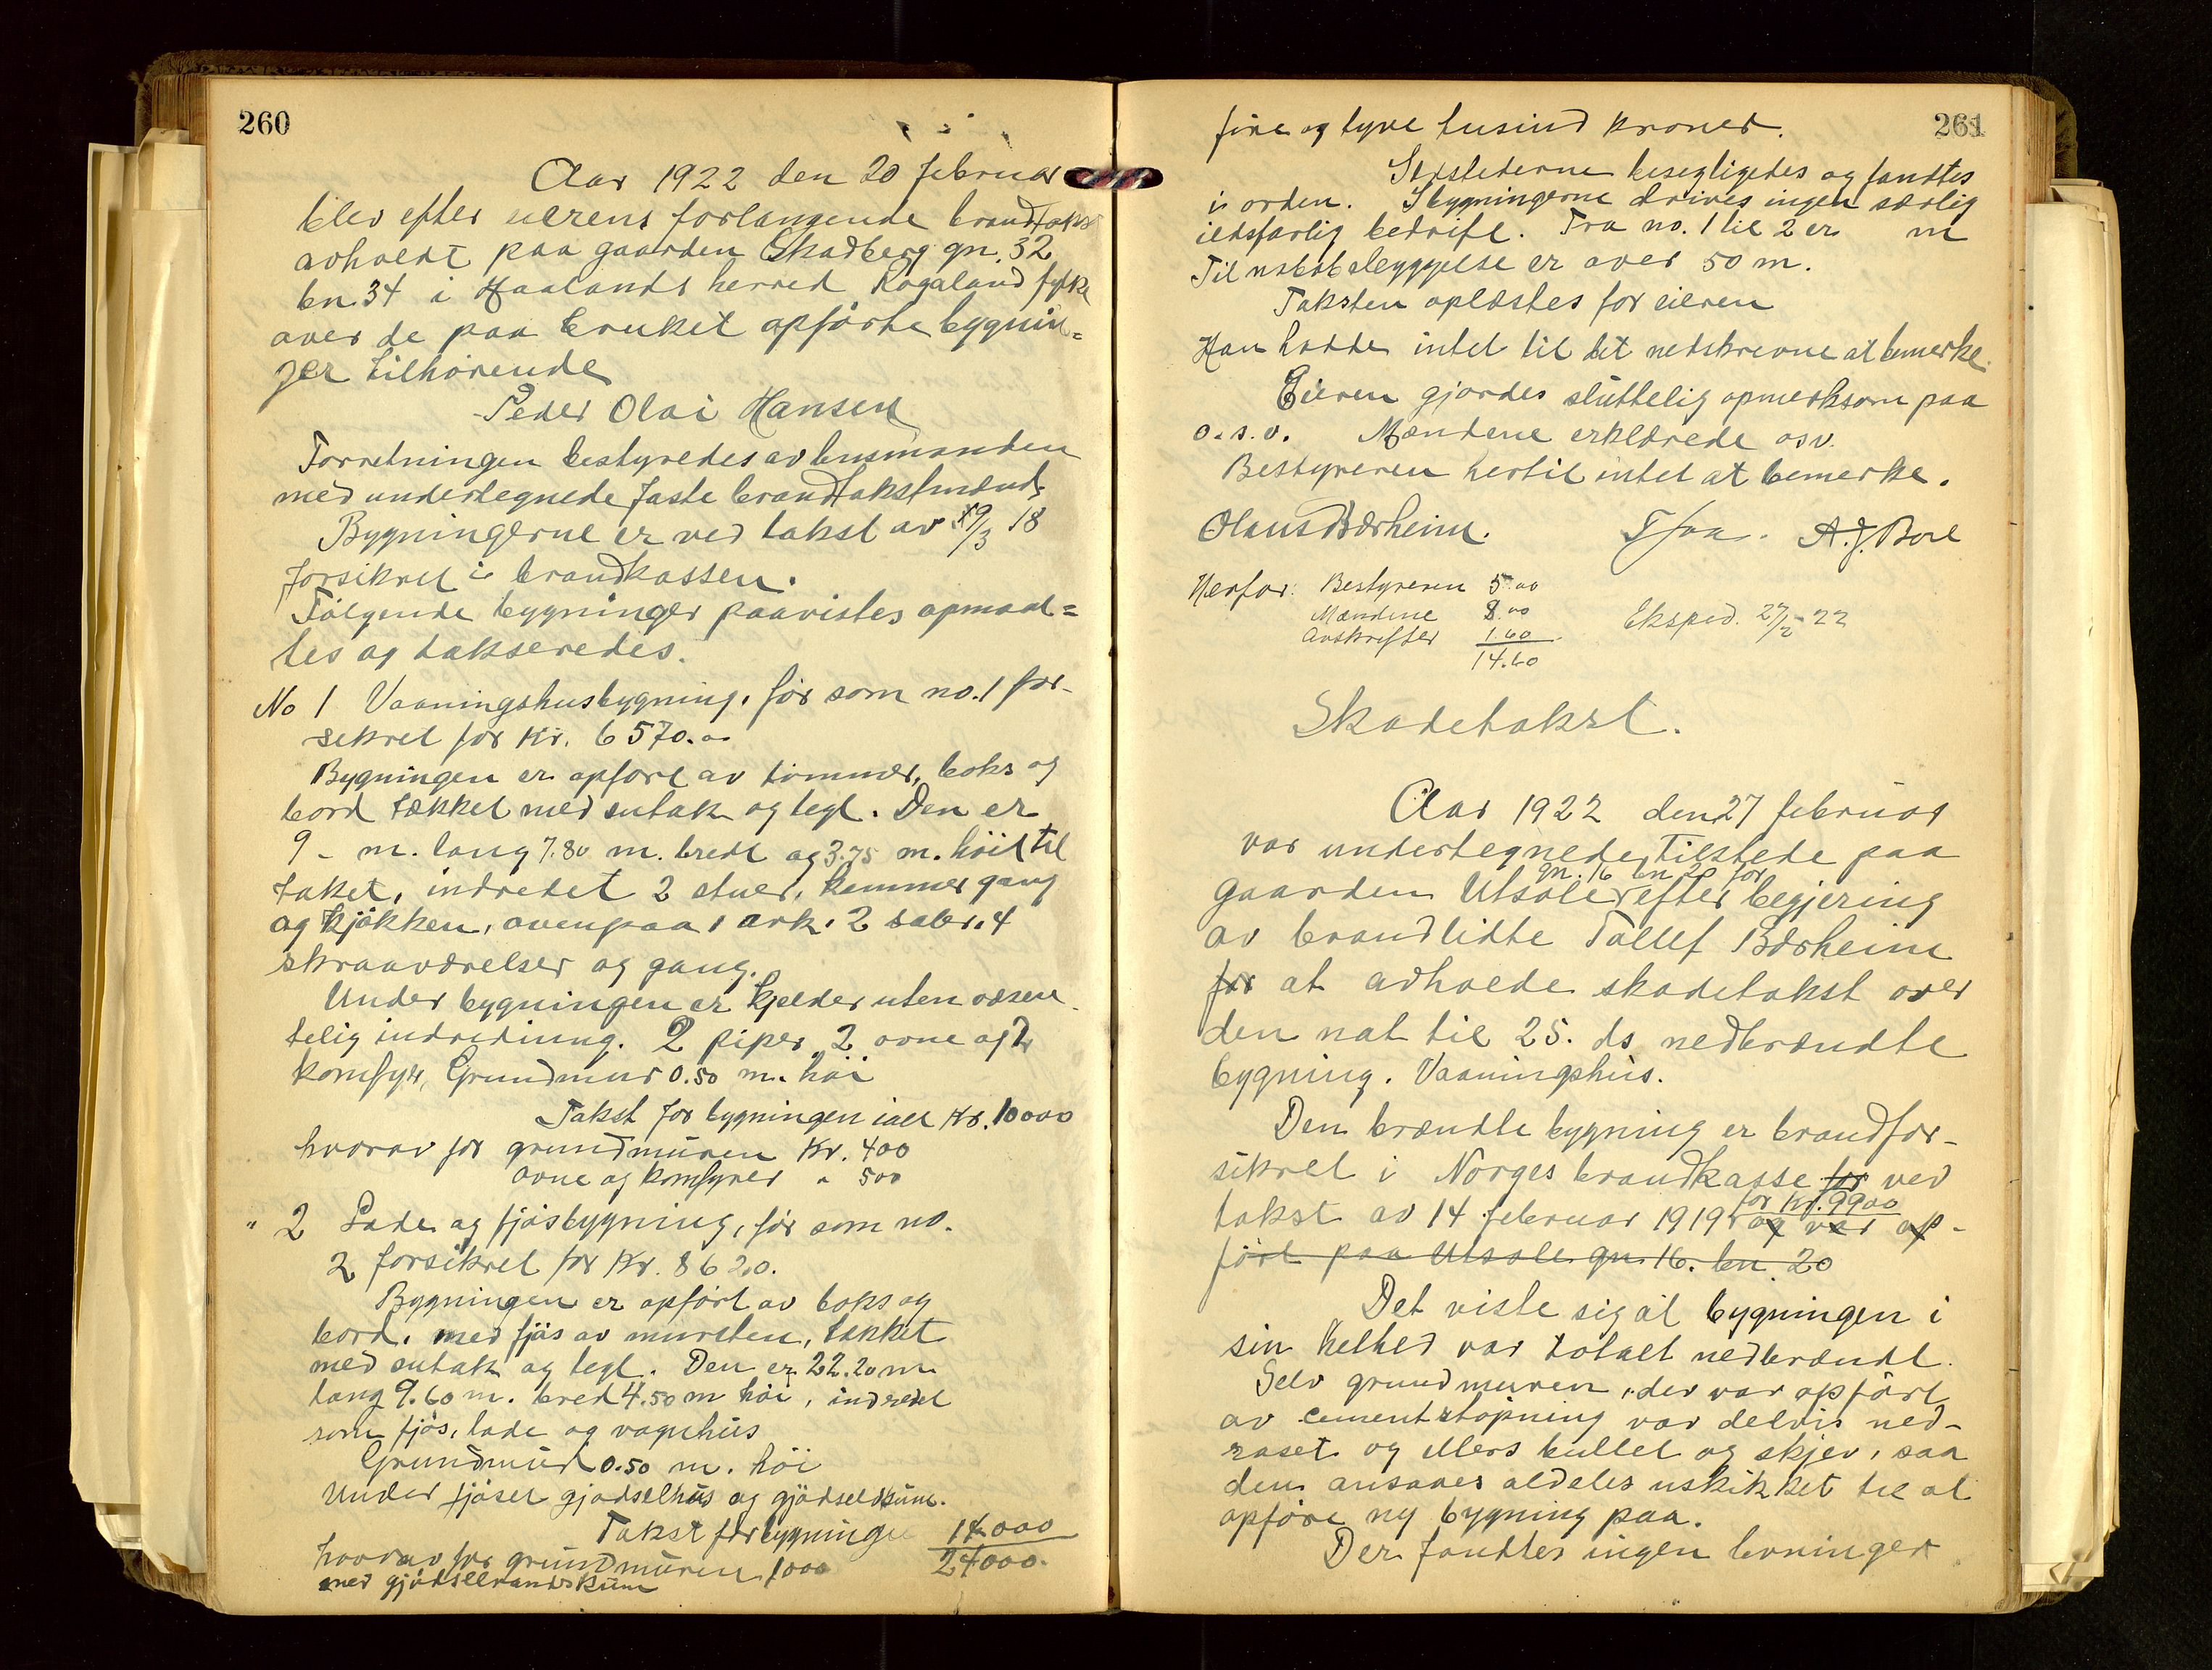 260
Aar 1922 den 20 februar
blev efter eierens forlangende brandtakst
avholdt paa gaarden Skadberg gn. 32
bn 34 i Haalands herred Rogaland fylke
over de paa bruket opførte bygnin=
ger tilhørende
Peder Olai Hansen
Forretningen bestyredes av lensmanden
med undertegnede faste brandtakstmænd
Bygningerne er ved takst av 19/3 18
forsikret i brandkassen.
Følgende bygninger paavistes opmaal=
tes og takseredes.
No 1 Vaaningshusbygning, før som no. 1 for-
sikret for Kr. 6570.00
Bygningen er opført av tømmer, boks og
bord tækket med sutak og tegl. Den er
9 - m. lang 7.80 m. bred og 3.75 m. høi til
taket, indredet 2 stuer, kammer gang
og kjøkken, ovenpaa 1 ark. 2 saler. 4
skraaværelser og gang.
Under bygningen er kjelder uten væsen-
telig indredning. 2 piper 2 ovne og 2
komfyr, Grundmur 0.50 m. høi
Takst for bygningen ialt Kr. 10000
hvorav for grundmuren Kr. 400
ovne og komfyrer " 500
" 2 Lade og fjøsbygning, før som no.
2 forsikret for Kr. 8620.
Bygningen er opført av boks og
bord, med fjøs av mursten, tækket
med sutak og tegl. Den er 22.20 m
lang 9.60 m. bred 4.50 m høi, indredet
som fjøs, lade og vognhus
Grundmur 0.50 m. høi
Under fjøset gjødselhus og gjødselkum.
Takst for bygningen 14000
hvorav for grundmuren 1000 24000.
med gjødselvandskum
261
fire og tyve tusind kroner.
Ildstederne besigtigedes og fandtes
i orden. I bygningerne drives ingen særlig
ildsfarlig bedrift. Fra no. 1 til 2 er m
Til nabobebyggelse er over 50 m.
Taksten oplæstes for eieren
Han hadde intet til det nedskrevne at bemerke.
Eieren gjordes sluttelig opmerksom paa
o.s.v. Mændene erklærede osv.
Bestyreren hertil intet at bemerke.
Olaus Bærheim. A. J. Bore
Herfor: Bestyreren 5.00
Mændene 8.00
Avskrifter 1.60
14.60
Eksped. 27/2 - 22
Skadetakst.
Aar 1922 den 27 februar
var undertegnede tilstede paa
gn. 16 bn 20 for
gaarden Utsole efter begjering
av brandlidte Tollef Bærheim
for at avholde skadetakst over
den nat til 25. ds nedbrændte
bygning. Vaaningshus.
Den brændte bygning er brandfor-
sikret i Norges brandkasse for ved
for Kr. 9900
takst av 14 februar 1919 og var op-
ført paa Utsole gn. 16. bn. 20
Det viste sig at bygningen i
sin helhed var totalt nedbrændt.
Selv grundmuren, der var opført
av cementstøpning var delvis ned-
raset og ellers bullet og skjev, saa
den ansaaes aldeles uskikket til at
opføre ny bygning paa.
Der fandtes ingen levninger